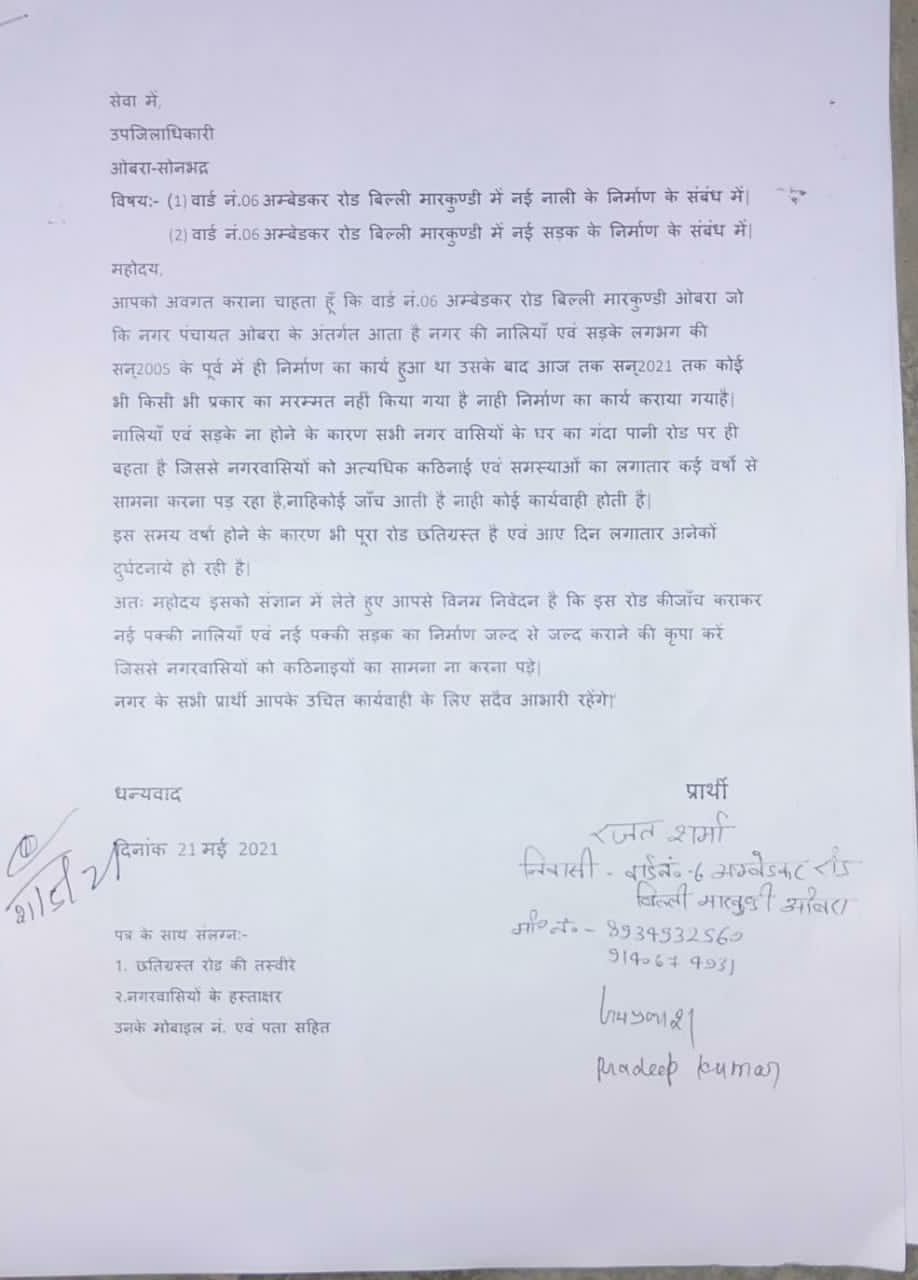 सेवा में,
उपजिलाधिकारी
ओबरा-सोनभद्र
विषय:- (1) वार्ड नं.06 अम्बेडकर रोड बिल्ली मारकुण्डी में नई नाली के निर्माण के संबंध में|
(2) वार्ड नं.06 अम्बेडकर रोड बिल्ली मारकुण्डी में नई सड़क के निर्माण के संबंध में|
महोदय,
आपको अवगत कराना चाहता हूँ कि वार्ड नं.06 अम्बेडकर रोड बिल्ली मारकुण्डी ओबरा जो
कि नगर पंचायत ओबरा के अंतर्गत आता है नगर की नालियाँ एवं सड़के लगभग की
सन्2005 के पूर्व में ही निर्माण का कार्य हुआ था उसके बाद आज तक सन्2021 तक कोई
भी किसी भी प्रकार का मरम्मत नहीं किया गया है नाही निर्माण का कार्य कराया गयाहै|
नालियाँ एवं सड़के ना होने के कारण सभी नगर वासियों के घर का गंदा पानी रोड पर ही
बहता है जिससे नगरवासियों को अत्यधिक कठिनाई एवं समस्याओं का लगातार कई वर्षो से
सामना करना पड़ रहा है,नाहिकोई जाँच आती है नाही कोई कार्यवाही होती है|
इस समय वर्षा होने के कारण भी पूरा रोड छतिग्रस्त है एवं आए दिन लगातार अनेकों
दुर्घटनाये हो रही है|
अतः महोदय इसको संज्ञान में लेते हुए आपसे विनम निवेदन है कि इस रोड कीजाँच कराकर
नई पक्की नालियाँ एवं नई पक्की सड़क का निर्माण जल्द से जल्द कराने की कृपा करें
जिससे नगरवासियों को कठिनाइयों का सामना ना करना पड़े|
नगर के सभी प्रार्थी आपके उचित कार्यवाही के लिए सदैव आभारी रहेंगे|
धन्यवाद
प्रार्थी
रजत शर्मा
दिनांक 21 मई 2021
निवासी - वार्ड नं.-6 अम्बेडकर रोड
बिल्ली मारकुण्डी ओबरा
मो० नं० - 8934932560
पत्र के साथ संलग्न:-
1. छतिग्रस्त रोड की तस्वीरे
२.नगरवासियों के हस्ताक्षर
उनके मोबाइल नं. एवं पता सहित
Pradeep Kumar